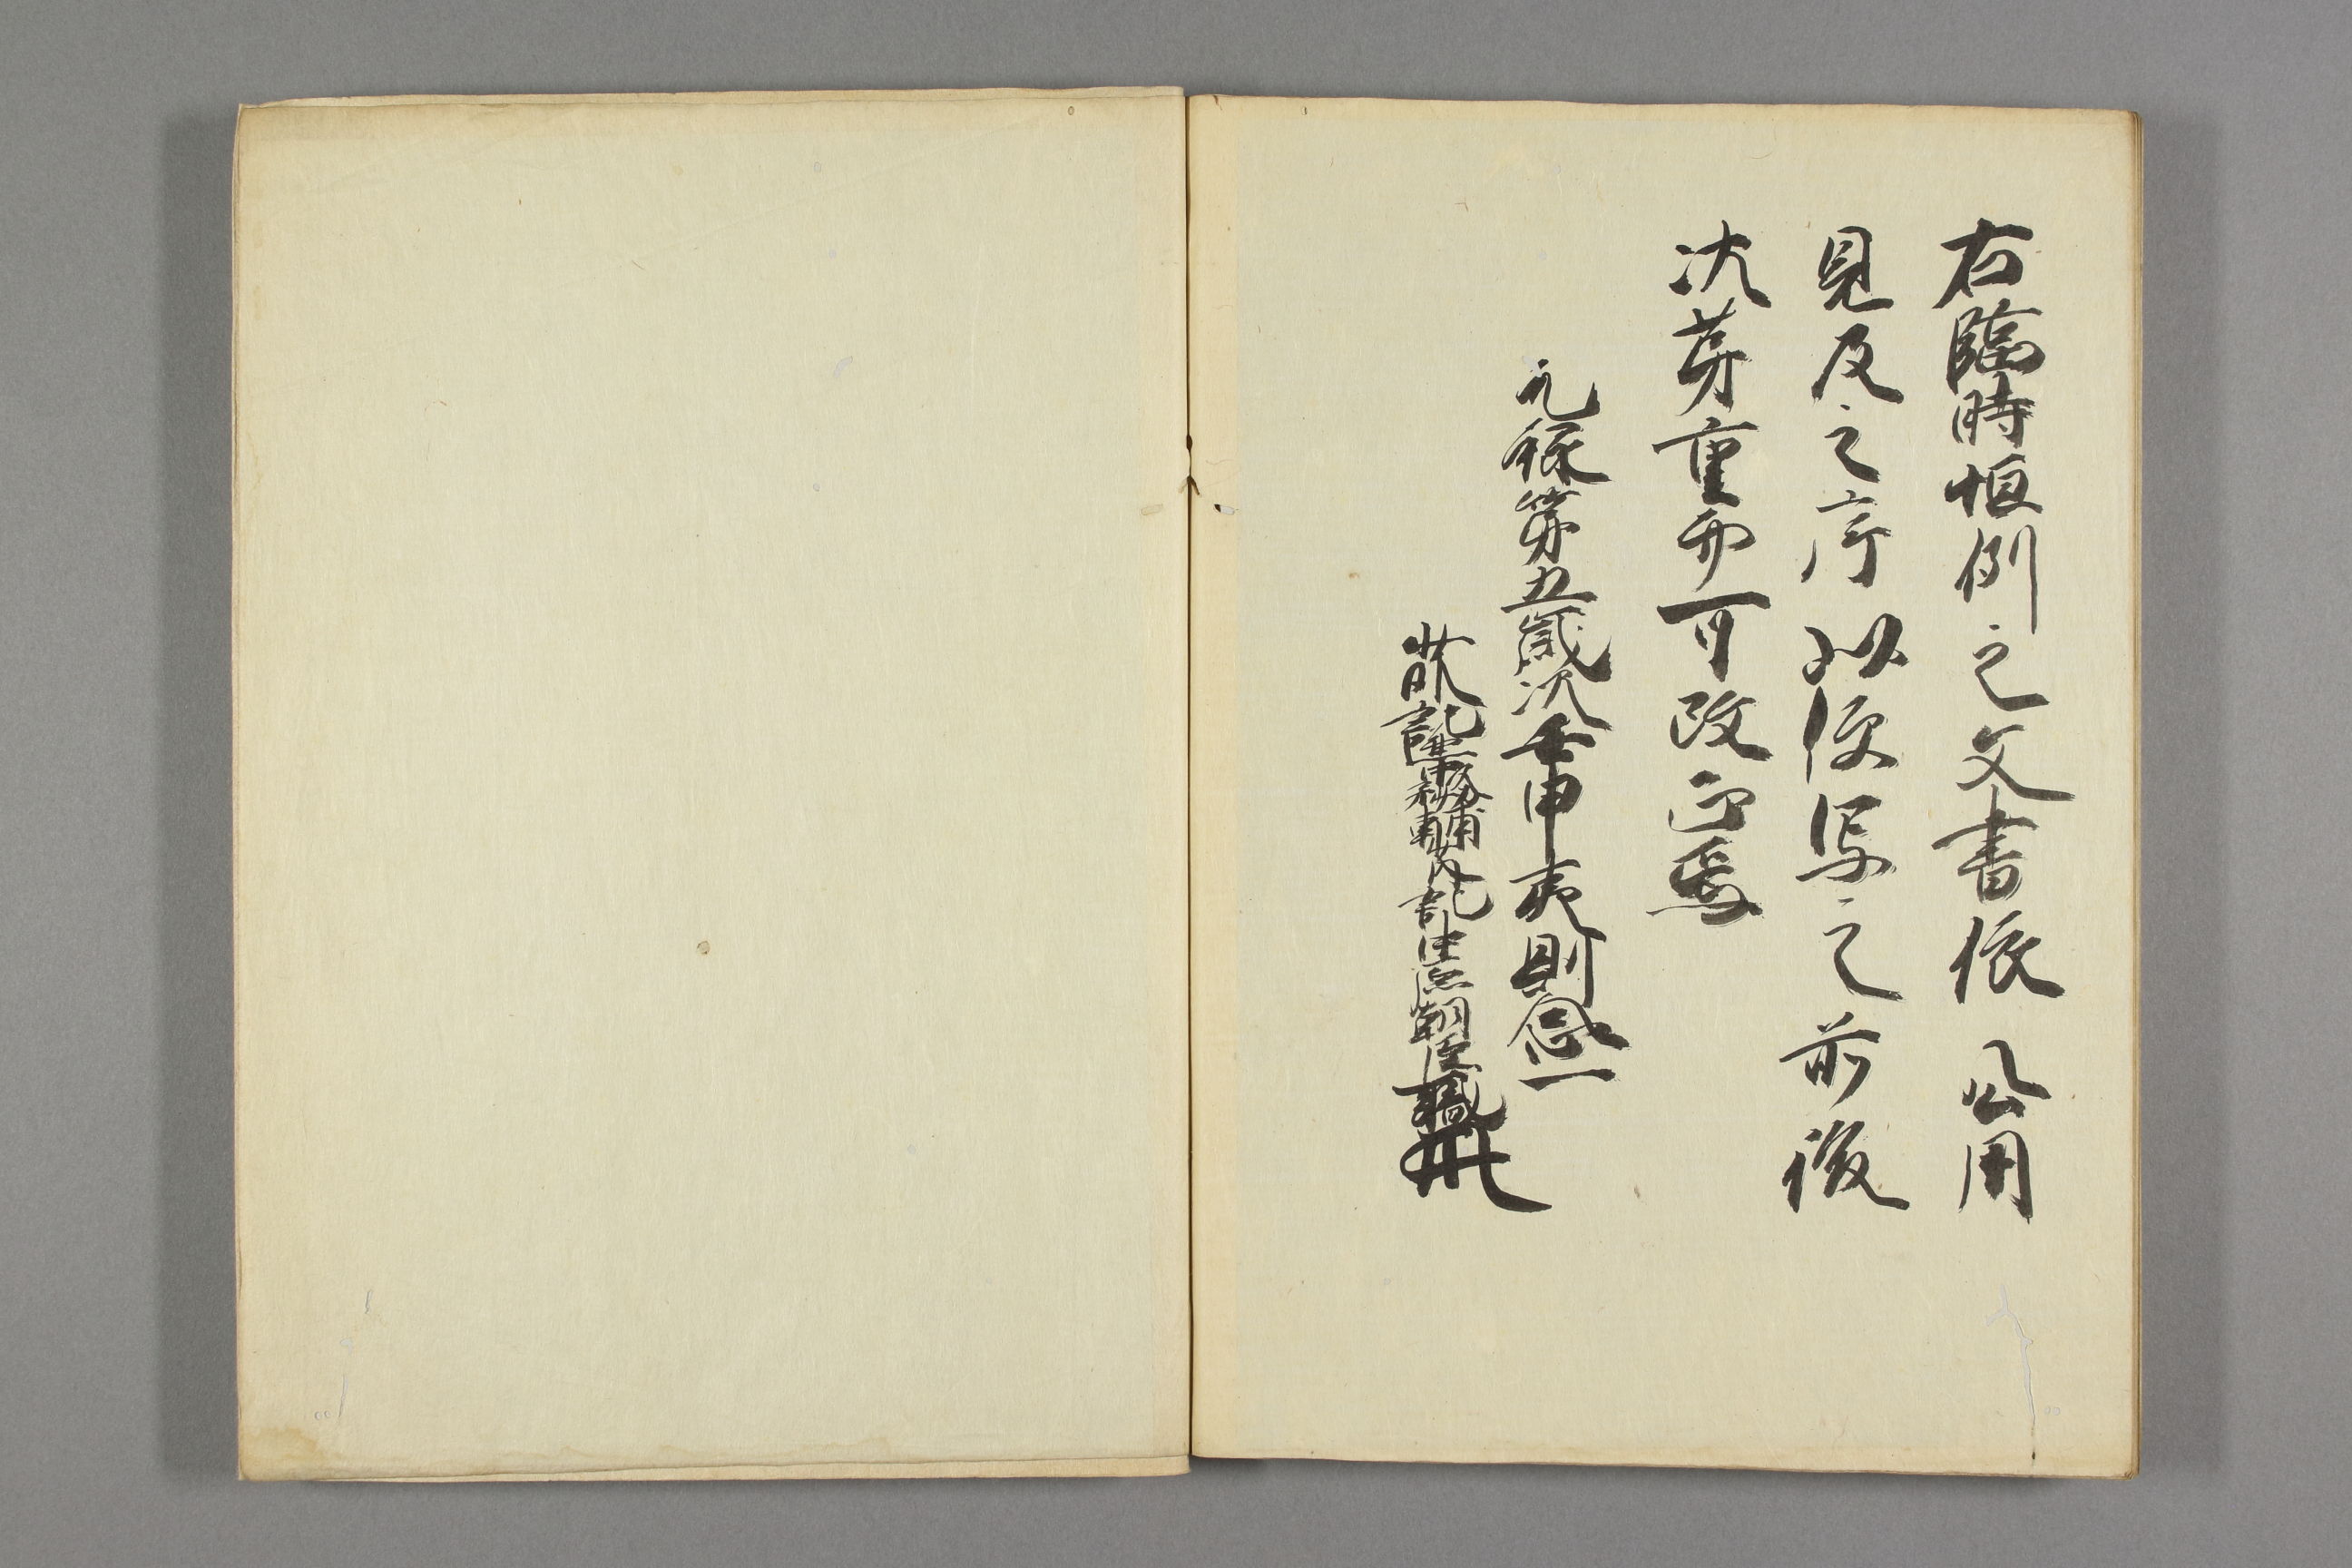 右臨時恒例之文書依 公用
見及之序以便写之前後
次第重而可改正焉
元禄第五歳次壬申夷則念一
中原朝臣職